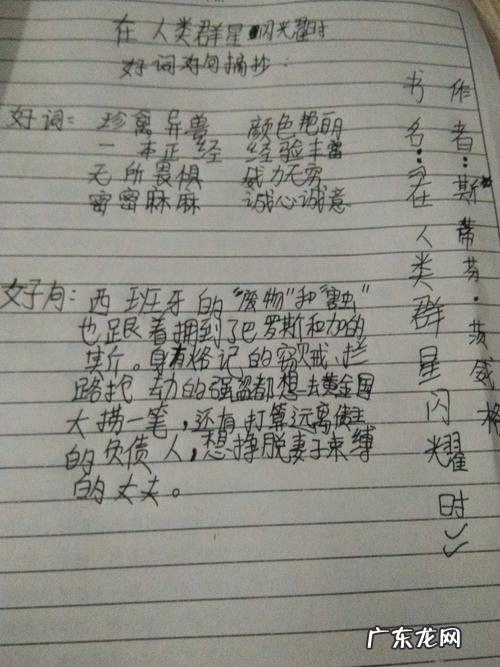 在人类群星闪光耀时
好词好句摘抄:
好词: 珍禽异兽 颜色艳丽
一本正经 经验丰富
无所畏惧 威力无穷
密密麻麻 诚心诚意
好句: 西班牙的“废物”和“蛀虫”
也跟着拥到了巴罗斯和加的
斯。身有烙记的窃贼、拦
路抢劫的强盗都想去黄金国
大捞一笔,还有打算远离债主
的负债人,想挣脱妻子束缚
的丈夫。
作者:斯蒂芬·茨威格
书名:《在人类群星闪耀时》
广东龙网